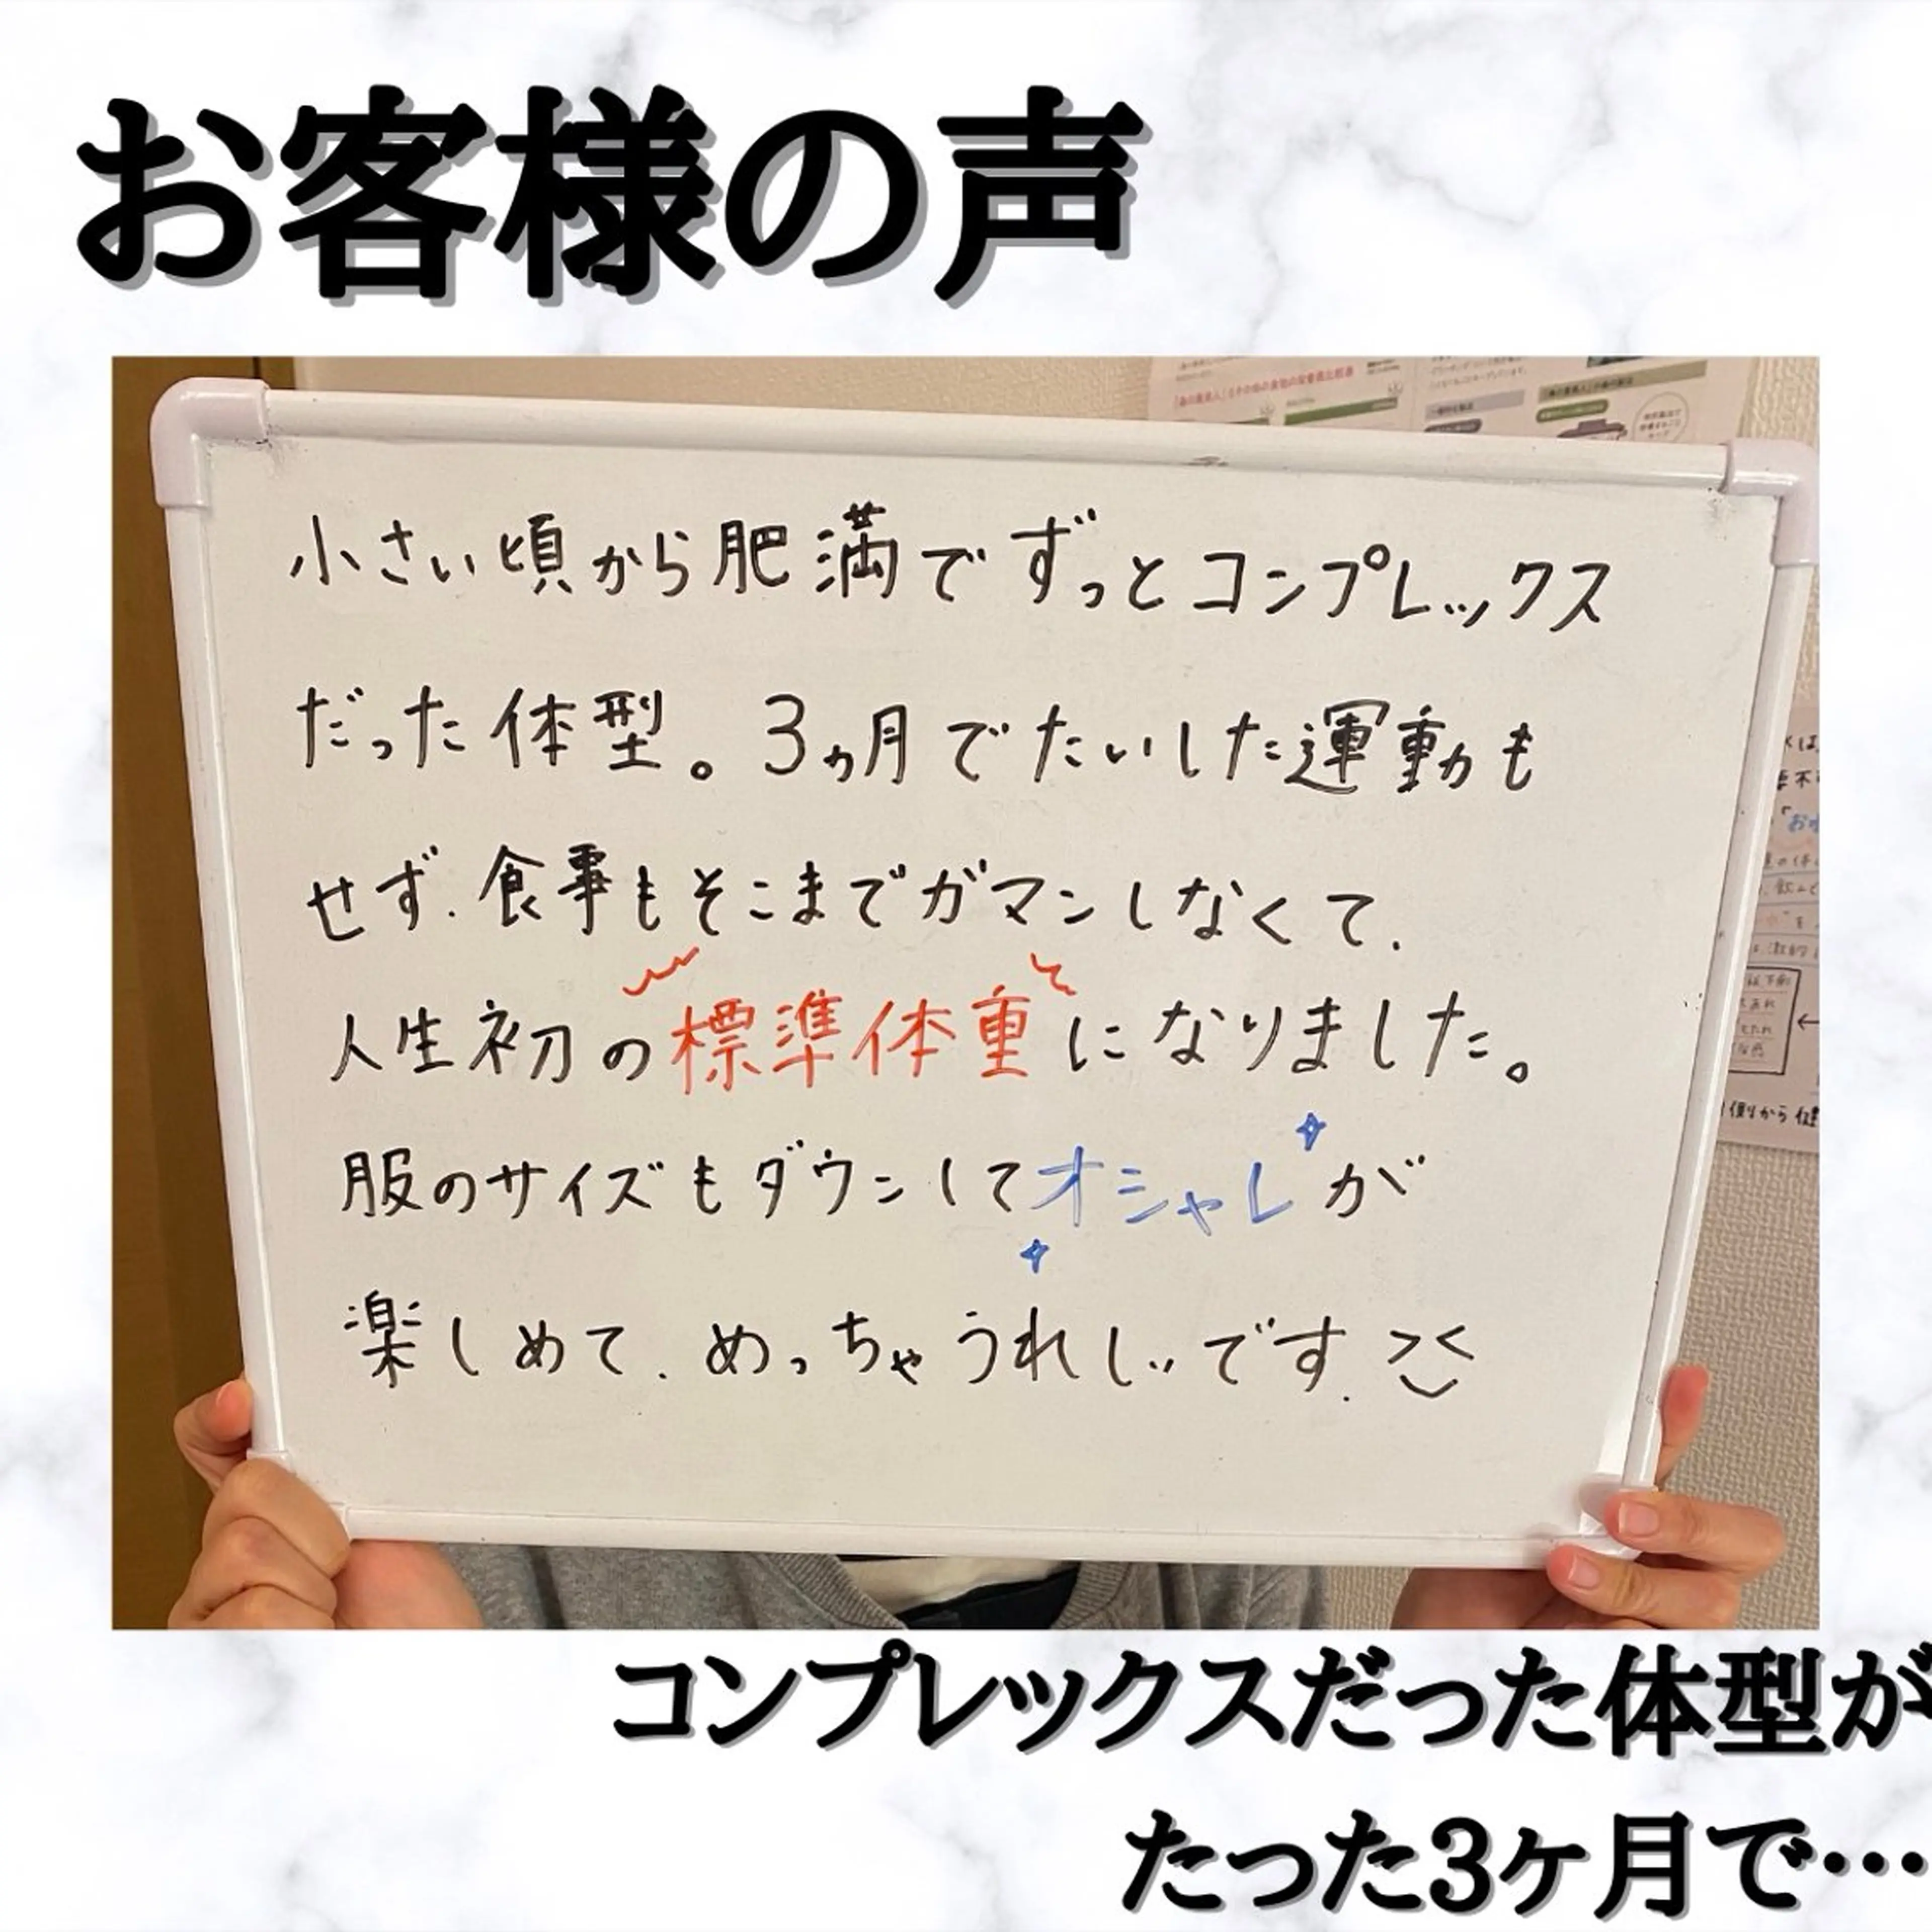 お客様の声
小さい頃から肥満でずっとコンプレックス
だった体型。3ヵ月でたいした運動も
せず、食事もそこまでガマンしなくて、
人生初の標準体重になりました。
服のサイズもダウンしてオシャレが
楽しめて、めっちゃうれしいです。
コンプレックスだった体型が
たった3ヶ月で…